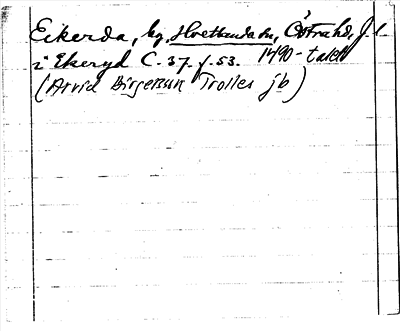 Eikerda, by, Hvetlanda sn, Östra hd, J. l.
i Ekeryd C. 37. f. 53. 1490-talet
(Arvid Birgerssun Trolles jb)